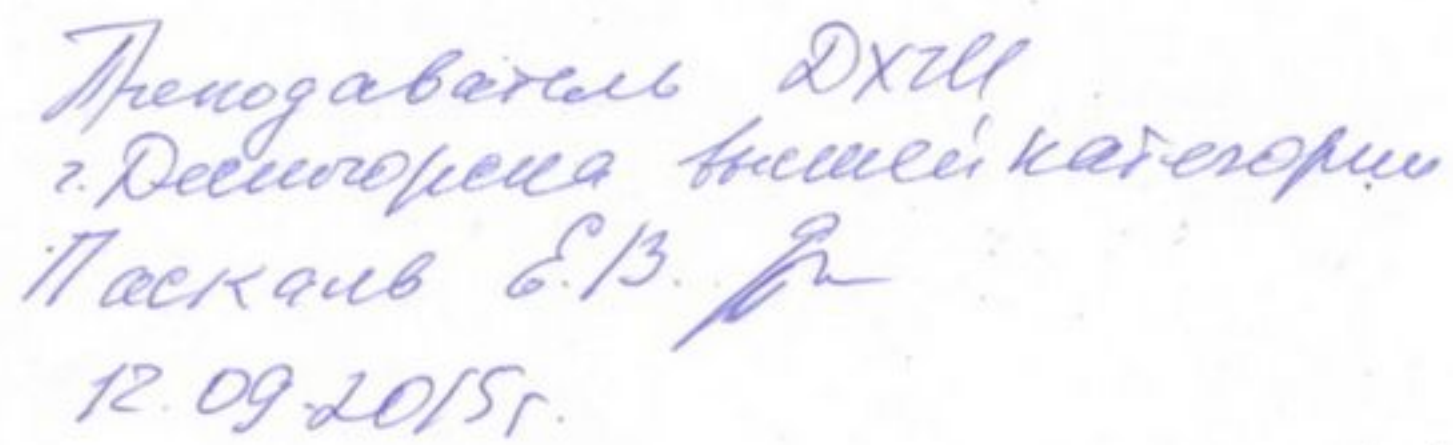 Преподаватель ДХШ
г. Десногорска высшей категории
Паскаль Е.В.
12.09.2015г.